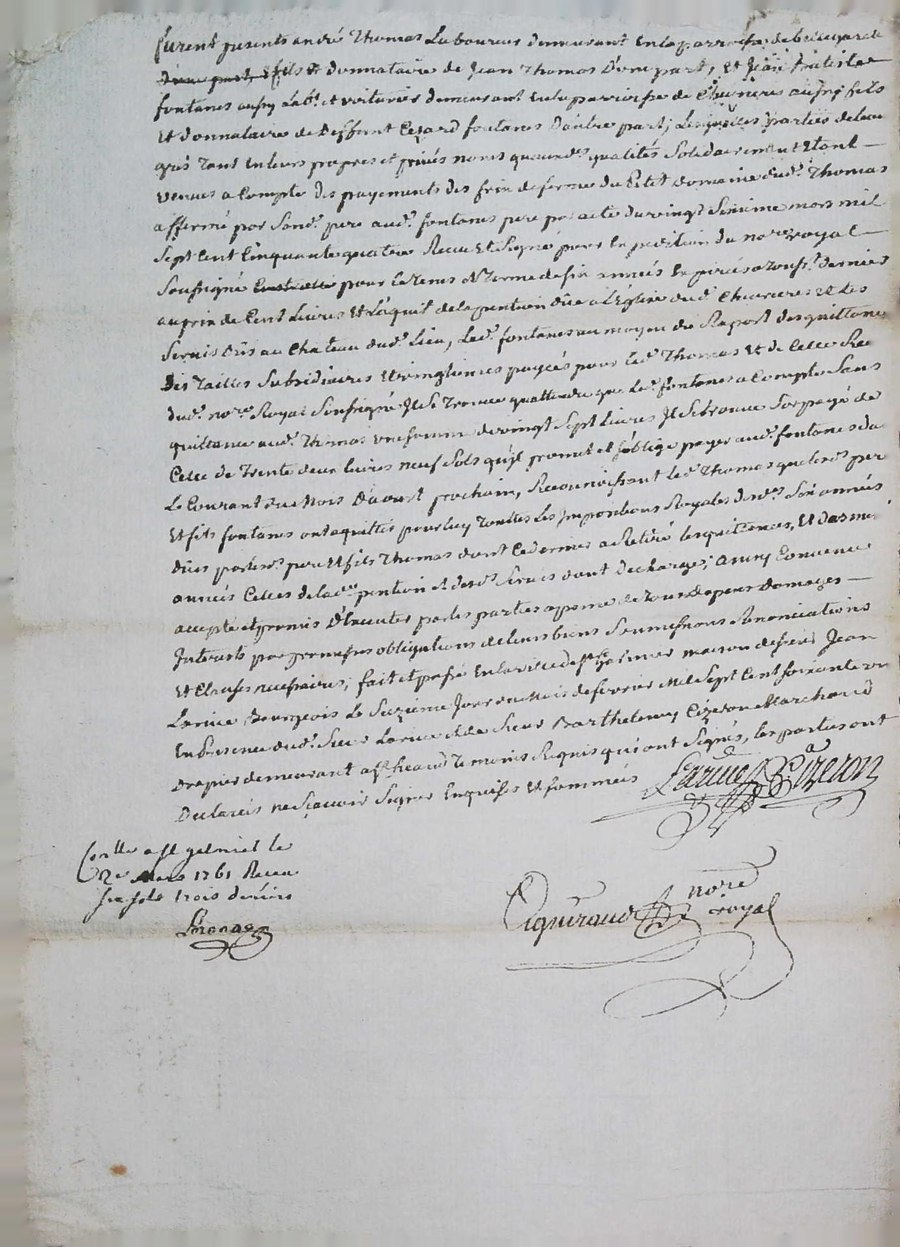 furent presents andré Thomas Laboureur demeurant en la parroisse de bellegarde
fils et donnataire de Jean Thomas D'une part, et Jean
fontanes aussy Lab.r et voiturier demeurant en la parroisse de Chevrieres aussy fils
Et donnataire de Deffunt Cezard fontanes Daubre part, Lesquelles parties de leur
gré Tant en leurs propres et privés noms que auxd. qualités Solidairement Etant
venues a Compte des payements des prix de ferme du Petit Domaine dud. Thomas
affermé par Sond. pere aud. fontanes pere par acte du vingt Sixieme mars mil
Sept Cent Cinquante quatre Receu Et Signé pour Expedition du no.re Royal
Soussigné pour le tems et Terme de six années Expirées a Touss.t dernier
au prix de Cent Livres Et L'aquit de la pention dûe a L'Eglise dud. Chevrieres Et Les
Servis Dûs au Chateau dud. Lieu, Led. fontanes au moyen du Raport des quittances
Des Tailles Subsidiaires Et vingtiemes payées pour led. Thomas Et de Celle
dud. no.re Royal Soussigné Il Se Trouve quattendu que Led. fontanes a Compté Sans
quittance aud. Thomas une somme de vingt Sept Livres Il Se trouve Surpayé de
Celle de Trente deux Livres neuf Sols qu'il promet et s'oblige payer aud. fontanes
Le Courant du Mois D'aoust prochain, Reconnoissant led. Thomas que lesd. pere
Et fils fontanes ont aquittés pour luy Touttes Les Impositions Royales desd. Six années
Dûes par lesd. pere Et fils Thomas dont Ce dernier a Retiré les quittances, Et
années Celles de lad. pention et desd. Servis dont decharges, ainsy Convenu
accepté et promis D'Executer par les parties a peine de Tous depens Domages
Interests par promesses obligations de leurs biens Soumissions Renonciations
Et Clauses necessaires, fait et passé En la ville de S.t galmier maison de sieur Jean
Larive Bourgeois Le Jour du Mois de fevrier Mil Sept Cent Soixante un
En Presence dud. Sieur Larive Et de Sieur Barthelemy Cizeron Marchand
drapier demeurant a S.t heand Temoins Requis qui ont Signés, les parties ont
Declarées ne Sçavoir Signer Enquises Et Sommées
Larive B. Cizeron
Con.llé a S.t galmier le
2.e Mars 1761 Receu
six sols trois deniers
Pigueraud no.re
royal